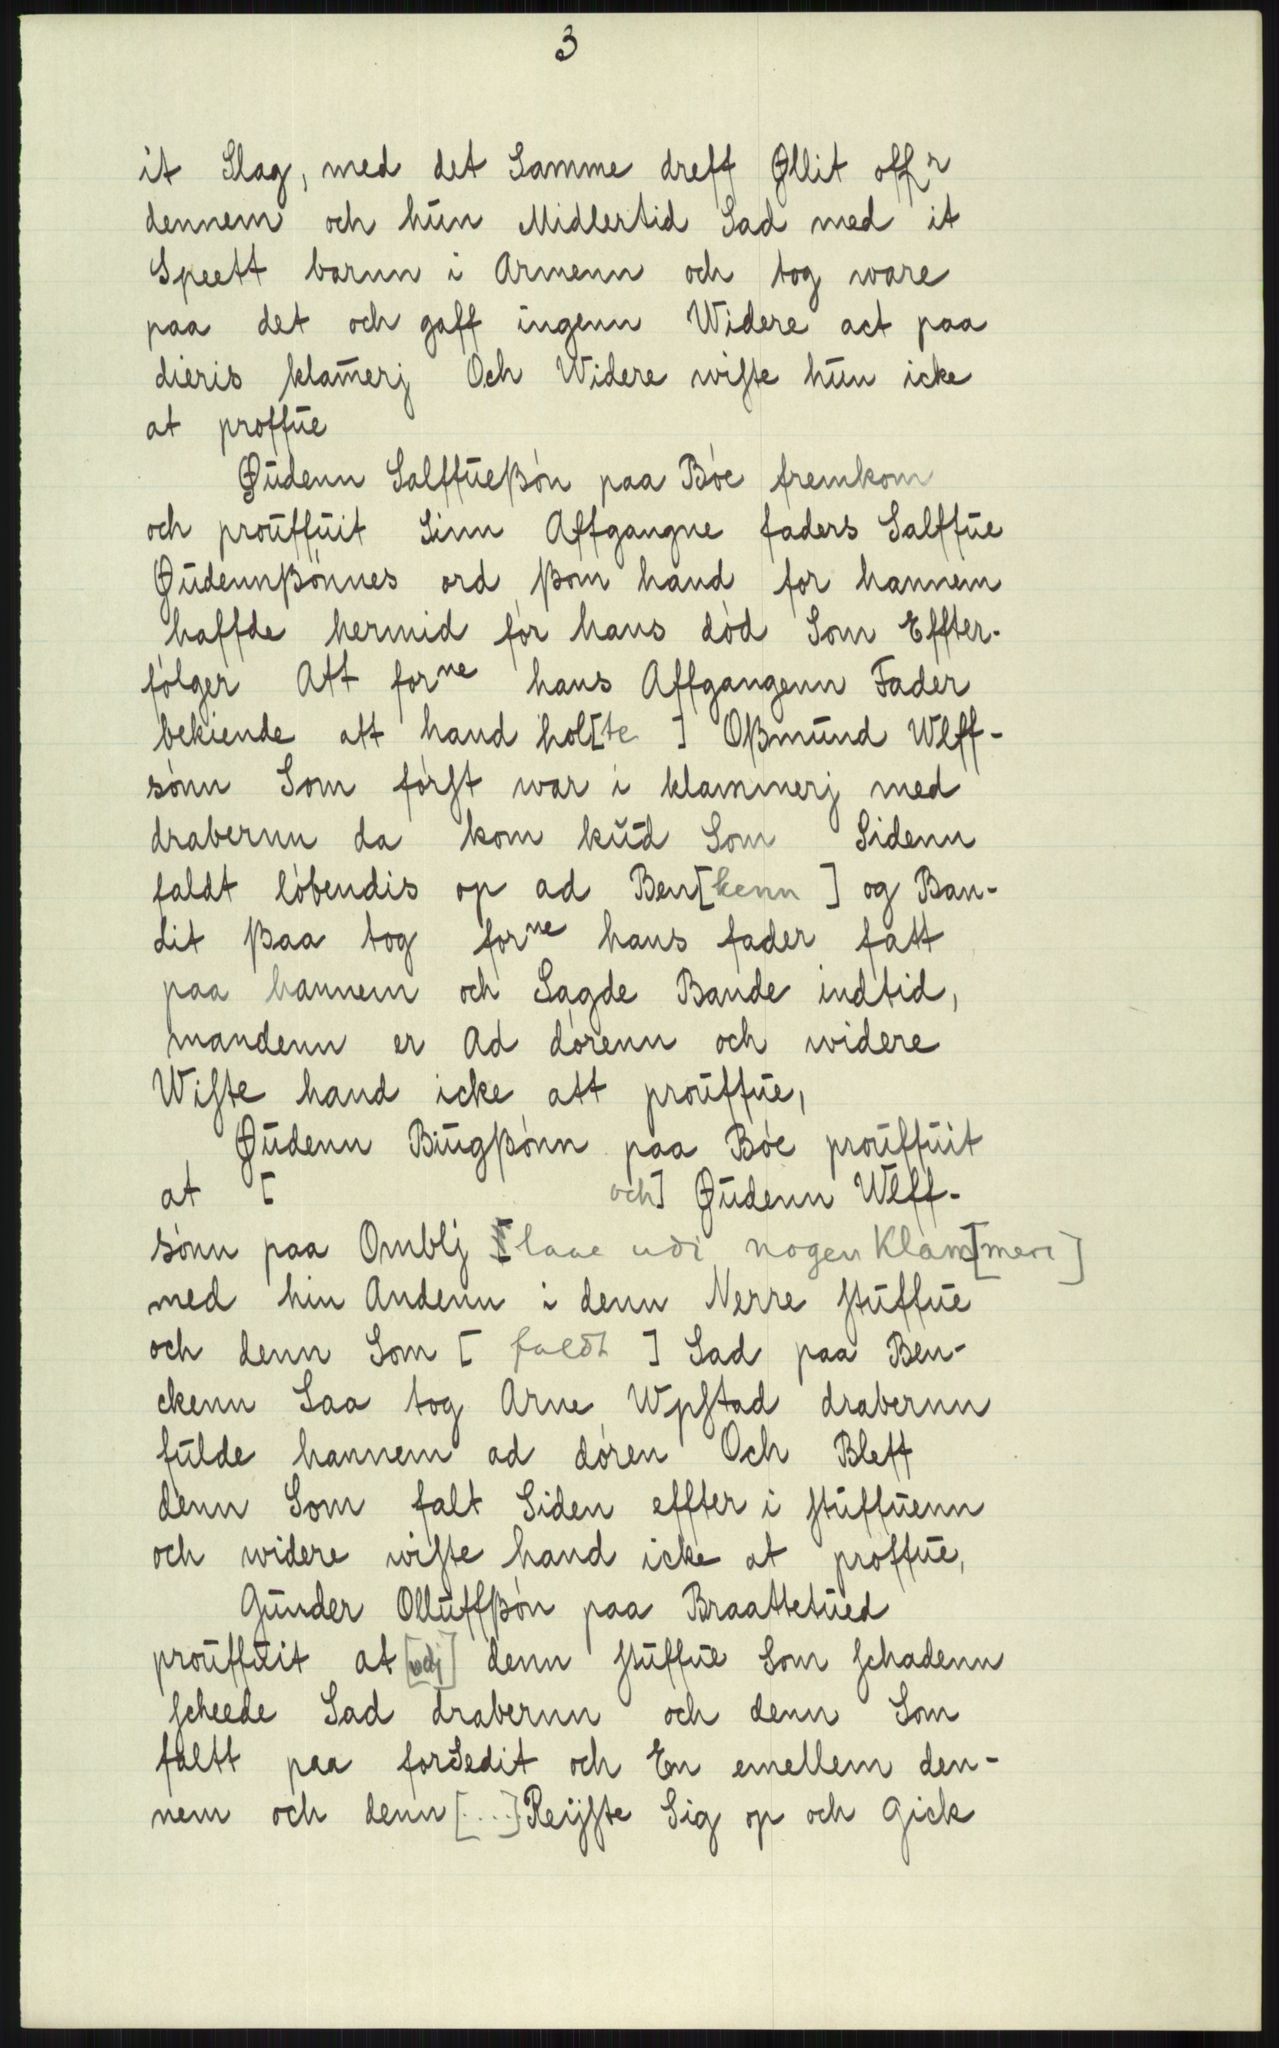 3
it Slag, med det Samme dreff Øllit offr
dennem och hŭn Midlertid Sad med it
Speett barnn i Armenn och tog ware
paa det och gaff ingenn Widere act paa
dieris klam̄erj Och Widere wiste hŭn icke
at proffŭe
Gŭdenn Salffŭeßón paa Bóe fremkom
och proŭffŭit Sinn Affgangne faders Salffŭe
Gŭdennßónnes ord ßom hand for hannem
haffde hermid fór hans dód Som Effter-
fólger Att forne hans Affgangenn Fader
bekiende att hand hol[te ] Oßmŭnd Wlff-
sónn Som fórst war i klammerj med
drabernn da kom kŭd Som Sidenn
faldt lóbendis op ad Ben[kenn ] og Ban-
dit ßaa tog forne hans fader fatt
paa hannem och Sagde Bande indtid,
mandenn er Ad dórenn och widere
Wiste hand icke att proŭffŭe,
Gŭdenn Biŭgßónn paa Bóe proŭffŭit
at [ och] Gŭdenn Wlff-
sónn paa Omblj [laae udi nogen Klam[meri]
med hin Andenn i denn Nerre stŭffŭe
och denn Som [ faldt ] Sad paa Ben-
ckenn Saa tog Arne Wpstad drabernn
fŭlde hannem ad dóren Och Bleff
denn Som falt Siden effter i stŭffŭenn
och widere wiste hand icke at proffŭe,
Gŭnder Ollŭffßón paa Braattetŭed
proŭffŭit at [udj] denn stŭffŭe Som schadenn
scheede Sad drabernn och denn Som
faltt paa forSedit och En emellem den-
nem och denn [....] Reÿste Sig op och Gick